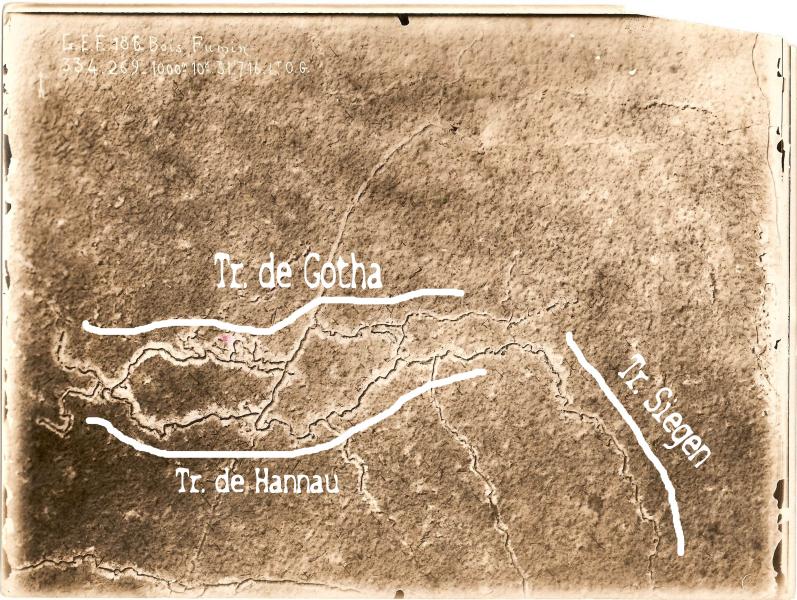 G.E.F. 186. Bois Fumin
334.269. 1000m 10h 31.7.16. Lt O.G.
Tr. de Gotha
Tr. Siegen
Tr. de Hannau